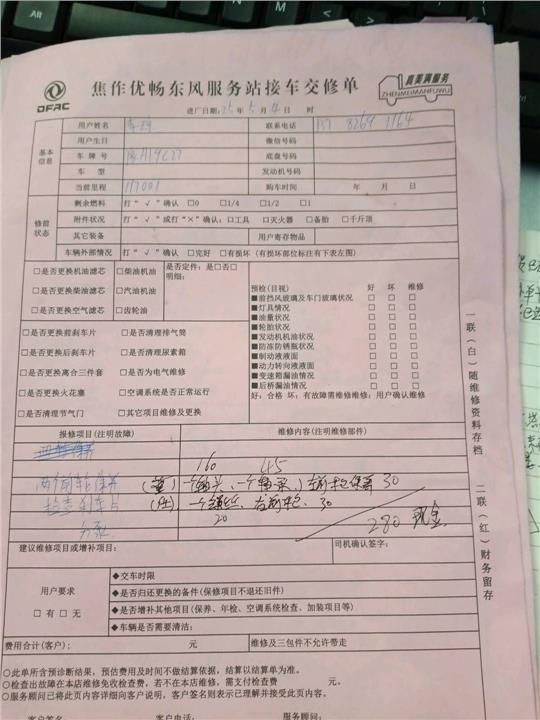 DFAC
焦作优畅东风服务站接车交修单
真美满服务
ZHENMEIMANFUWU
进厂日期: 年 5 月 4 日 时
基本信息
用户姓名 联系电话 157 8269 1164
用户生日 微信号码
车 牌 号 底盘号码
车 型 发动机号码
当前里程 117001 购车时间 年 月 日
修前状态
剩余燃料 打“√”确认 □0 □1/4 □1/2 □1
附件状况 打“√”或打“×”确认:□工具 □灭火器 □备胎 □千斤顶
其它装备 用户寄存物品
车辆外部情况 打“√”确认 □完好 □有损坏(有损坏部位标注有下表左图)
□是否更换机油滤芯 □柴油机油 是否定件:是□否□
明细:
□是否更换柴油滤芯 □汽油机油
□是否更换空气滤芯 □齿轮油
□是否更换前刹车片 □是否清理排气筒
□是否更换后刹车片 □是否清理尿素箱
□是否更换离合三件套 □是否为电气维修
□是否更换火花塞 □空调系统是否正常运行
□是否清理节气门 □其它项目维修及更换
预检(目视) 好 坏 维修
■前挡风玻璃及车门玻璃状况 □ □ □
■灯具情况 □ □ □
■油量状况 □ □ □
■轮胎状况 □ □ □
■发动机机油状况 □ □ □
■防冻防锈瓶状况 □ □ □
■制动液液面 □ □ □
■动力转向液液面 □ □ □
■变速箱漏油情况 □ □ □
■后桥漏油情况 □ □ □
好:合格 坏:有故障需维修维修:用户确认维修
报修项目(注明故障) 维修内容(注明维修部件)
160 45
两个前轮保养 一个轴头、一个轴承、 30
检查刹车片 右前轮、30
20
280 现金
建议维修项目或增补项目: 司机确认签字:
用户要求
□有 □无
◆交车时限
◆是否归还更换的备件(保修项目不退还旧件)
◆是否增补其他项目(保养、年检、空调系统检查、加装项目等)
◆车辆是否需要清洁:
费用合计(客户): 元 维修及三包件不允许带走
○此单所含预诊断结果,预估费用及时间不做结算依据,结算以结算单为准。
○检查出故障在本店维修免收检查费,若不在本店维修,需支付检查费 元。
○服务顾问已将此页内容详细向客户说明,客户签名则表示已理解并接受此页内容。
客户签名: 客户电话: 服务顾问:
一联(白)随维修资料存档
二联(红)财务留存